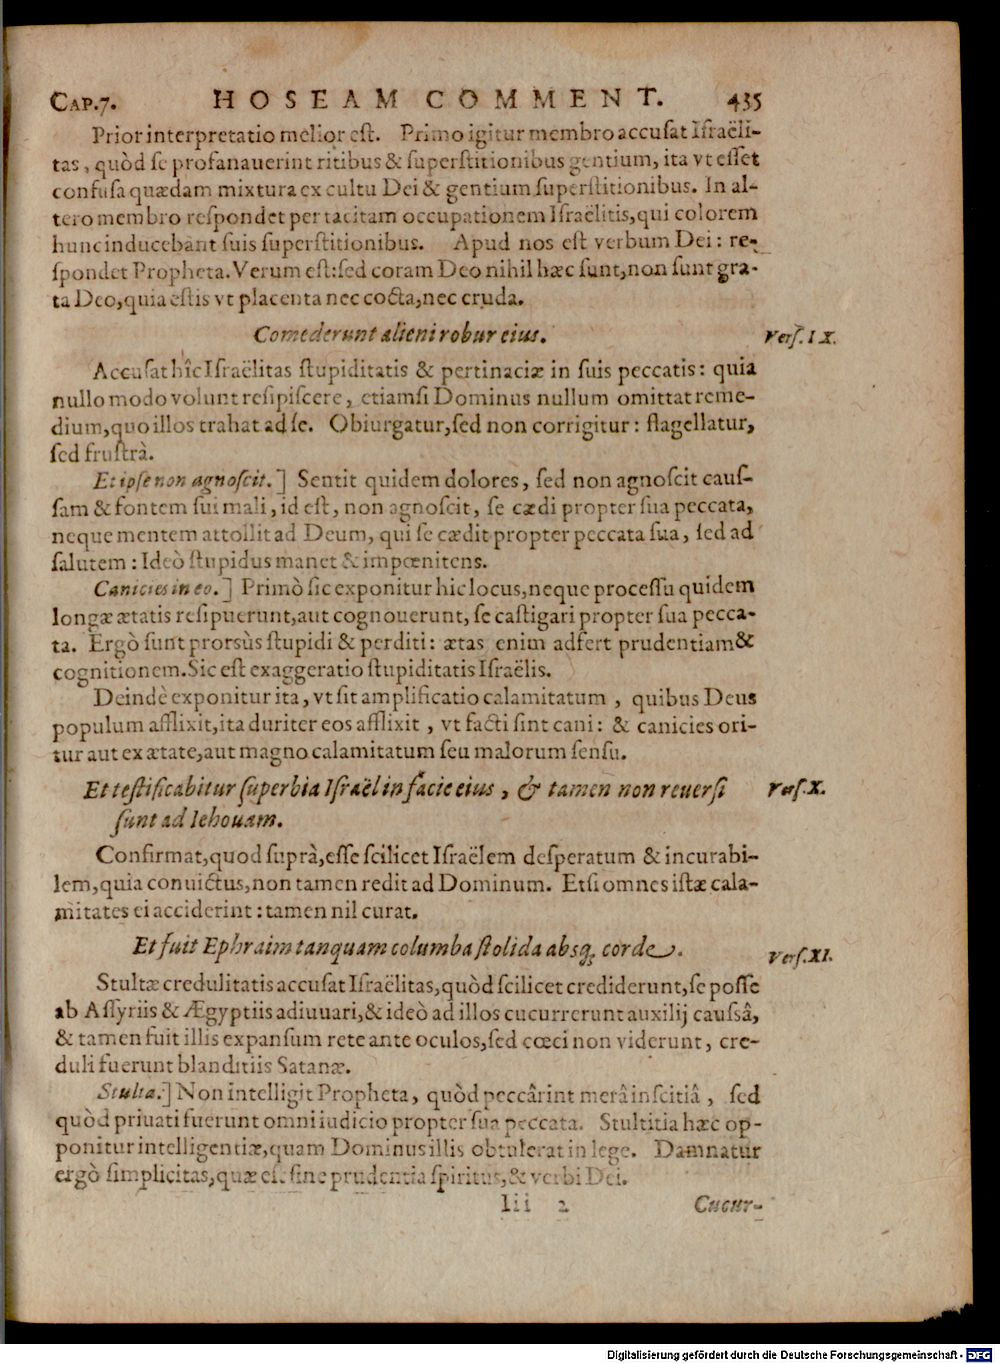 CAP.7. HOSEAM COMMENT. 435
Prior interpretatio melior eſt. Primo igitur membro accuſat Iſraëli-
tas, quòd ſe profanauerint ritibus & ſuperſtitionibus gentium, ita vt eſſet
confuſa quædam mixtura ex cultu Dei & gentium ſuperſtitionibus. In al-
tero membro reſpondet per tacitam occupationem Iſraëlitis, qui colorem
hunc inducebant ſuis ſuperſtitionibus. Apud nos eſt verbum Dei: re-
ſpondet Propheta. Verum eſt: ſed coram Deo nihil hæc ſunt, non ſunt gra-
ta Deo, quia eſtis vt placenta nec cocta, nec cruda.
Comederunt alieni robur eius. Verſ. IX.
Accuſat hîc Iſraëlitas ſtupiditatis & pertinaciæ in ſuis peccatis: quia
nullo modo volunt reſipiſcere, etiamſi Dominus nullum omittat reme-
dium, quo illos trahat ad ſe. Obiurgatur, ſed non corrigitur: flagellatur,
ſed fruſtrà.
Et ipſe non agnoſcit.] Sentit quidem dolores, ſed non agnoſcit cauſ-
ſam & fontem ſui mali, id eſt, non agnoſcit, ſe cædi propter ſua peccata,
neque mentem attollit ad Deum, qui ſe cædit propter peccata ſua, ſed ad
ſalutem: Ideò ſtupidus manet & impœnitens.
Canicies in eo.] Primò ſic exponitur hic locus, neque proceſſu quidem
longæ ætatis reſipuerunt, aut cognouerunt, ſe caſtigari propter ſua pecca-
ta. Ergò ſunt prorsùs ſtupidi & perditi: ætas enim adfert prudentiam &
cognitionem. Sic eſt exaggeratio ſtupiditatis Iſraëlis.
Deindè exponitur ita, vt ſit amplificatio calamitatum, quibus Deus
populum afflixit, ita duriter eos afflixit, vt facti ſint cani: & canicies ori-
tur aut ex ætate, aut magno calamitatum ſeu malorum ſenſu.
Et teſtificabitur ſuperbia Iſraël in facie eius, & tamen non reuerſi Verſ. X.
ſunt ad Iehouam.
Confirmat, quod ſuprà, eſſe ſcilicet Iſraëlem deſperatum & incurabi-
lem, quia conuictus, non tamen redit ad Dominum. Etſi omnes iſtæ cala-
mitates ei acciderint: tamen nil curat.
Et fuit Ephraim tanquam columba ſtolida absq; corde. Verſ. XI.
Stultæ credulitatis accuſat Iſraëlitas, quòd ſcilicet crediderunt, ſe poſſe
ab Aſſyriis & Ægyptiis adiuuari, & ideò ad illos cucurrerunt auxilij cauſsâ,
& tamen fuit illis expanſum rete ante oculos, ſed cœci non viderunt, cre-
duli fuerunt blanditiis Satanæ.
Stulta.] Non intelligit Propheta, quòd peccârint merâ inſcitiâ, ſed
quòd priuati fuerunt omni iudicio propter ſua peccata. Stultitia hæc op-
ponitur intelligentiæ, quam Dominus illis obtulerat in lege. Damnatur
ergò ſimplicitas, quæ eſt ſine prudentia ſpiritus, & verbi Dei.
Iii 2 Cucur-
Digitalisierung gefördert durch die Deutsche Forschungsgemeinschaft - DFG